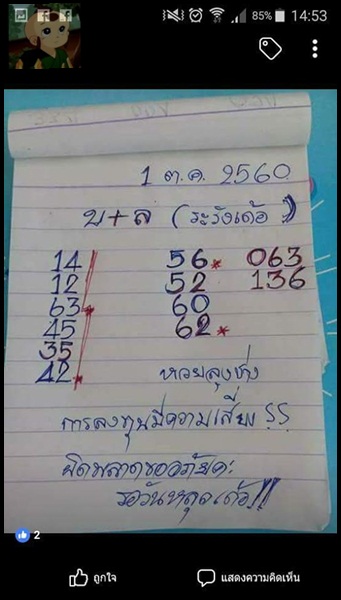 85% 14:53
1 ต.ค. 2560
บ+ล (ระวังเด้อ)
14 56* 063
12 52 136
63* 60
45 62*
35
42*
หวยลุงช่าง
การลงทุนมีความเสี่ยง
ผิดพลาดขออภัยคะ
รอวันหลุดเด้อ
2
ถูกใจ แสดงความคิดเห็น